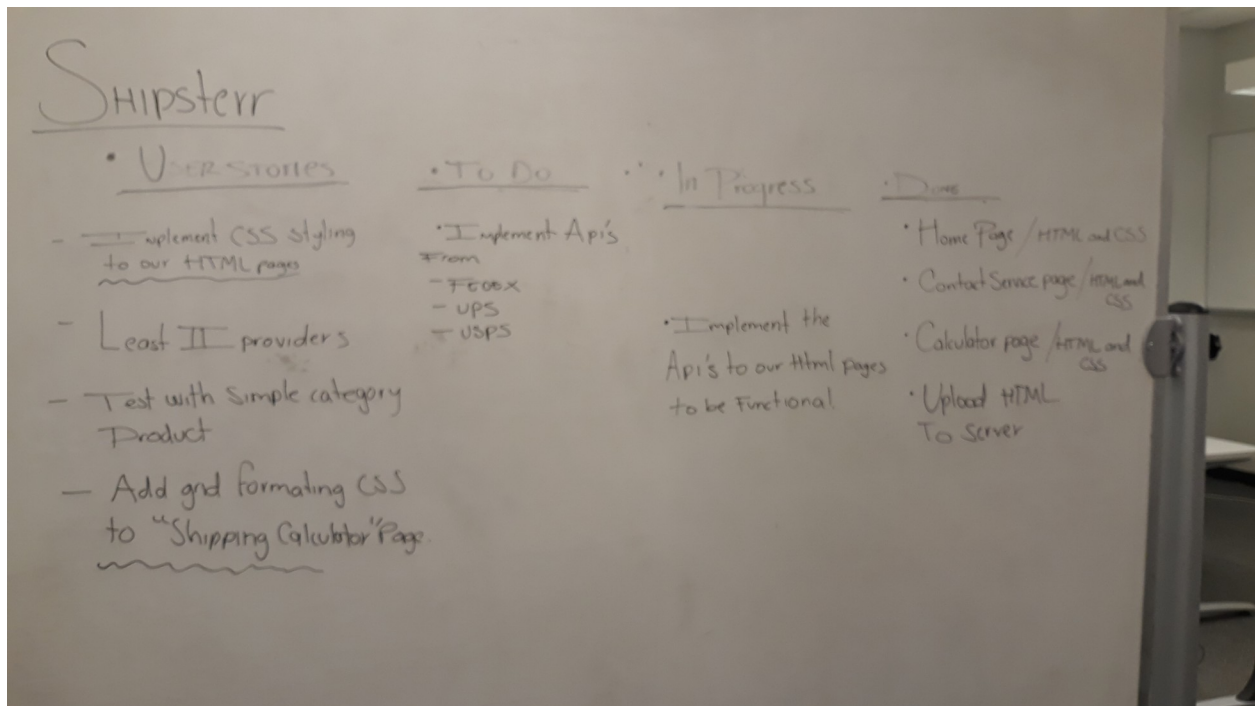 Shipsterr
• User Stories
- Implement CSS Styling
to our HTML pages
- Least II providers
- Test with Simple category
Product
- Add grid formating CSS
to "Shipping Calculator" Page.
• To Do
• Implement Api's
From
- FEDEX
- UPS
- USPS
• In Progress
• Implement the
Api's to our Html pages
to be Functional
• Done
• Home Page / HTML and CSS
• Contact Service page / HTML and
CSS
• Calculator page / HTML and
CSS
• Upload HTML
To Server